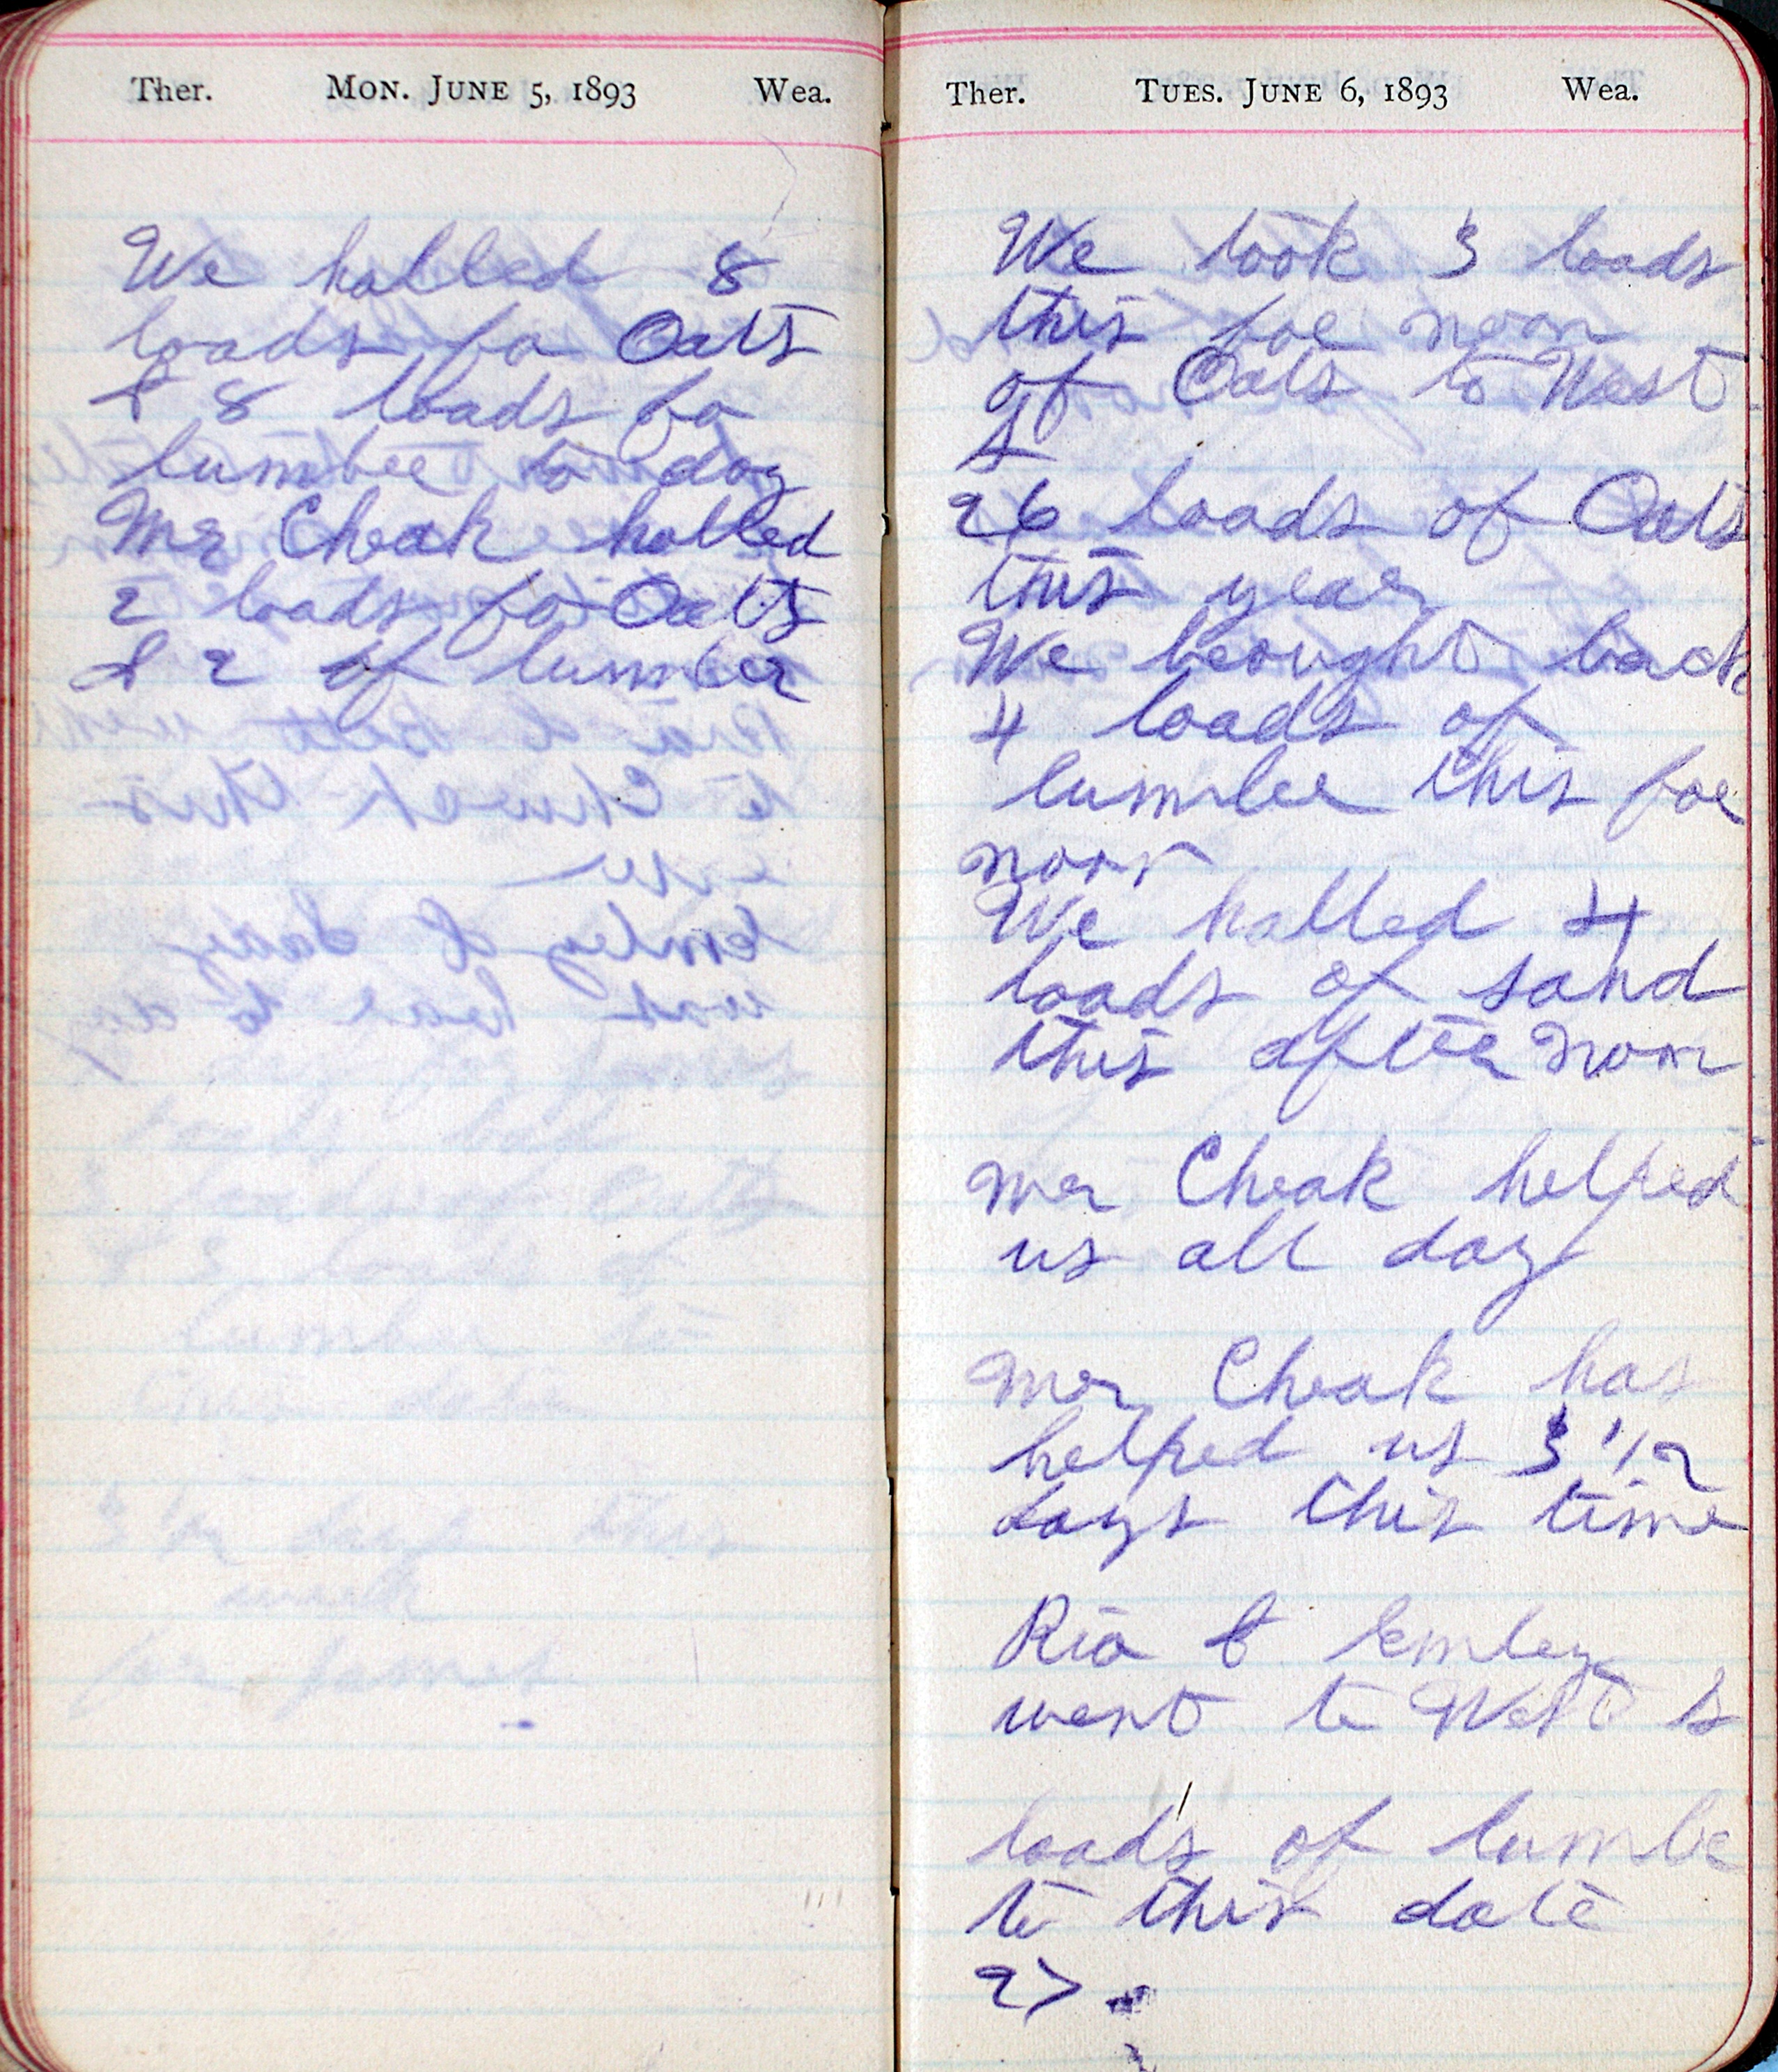 Ther. MON. JUNE 5, 1893 Wea.
We halled 8
loads fo Oats
& 8 loads fo
lumbee to day
Mr Cheak halled
2 loads fo Oats
& 2 of lumber
Ther. TUES. JUNE 6, 1893 Wea.
We took 3 loads
this foe noon
of Oats to West
S
26 loads of Oats
this year
We brought back
4 loads of
lumbee this foe
noon
We halled 4
loads of sand
this after noon
Mr Cheak helped
us all day
Mr Cheak has
helped us 3 1/2
days this time
Ria & Emley
went to West S
loads of lumbe
to this date
27